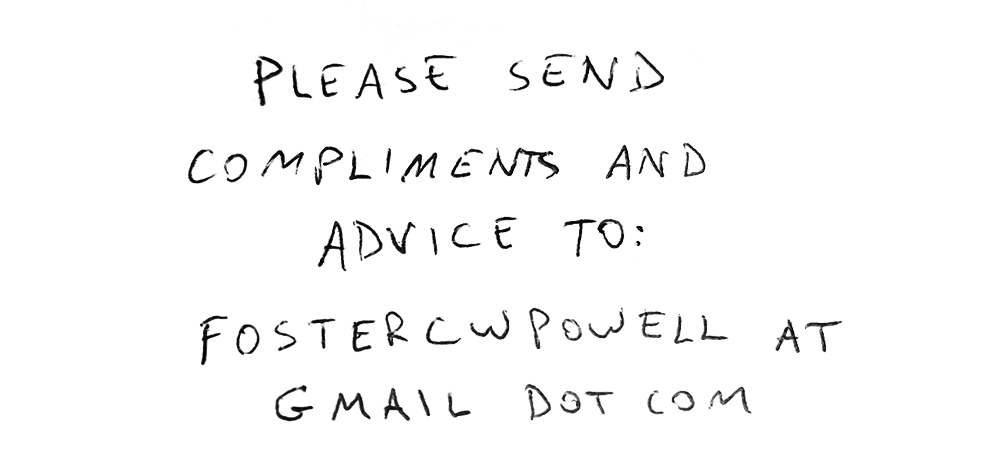 PLEASE SEND
COMPLIMENTS AND
ADVICE TO:
FOSTERCWPOWELL AT
GMAIL DOT COM